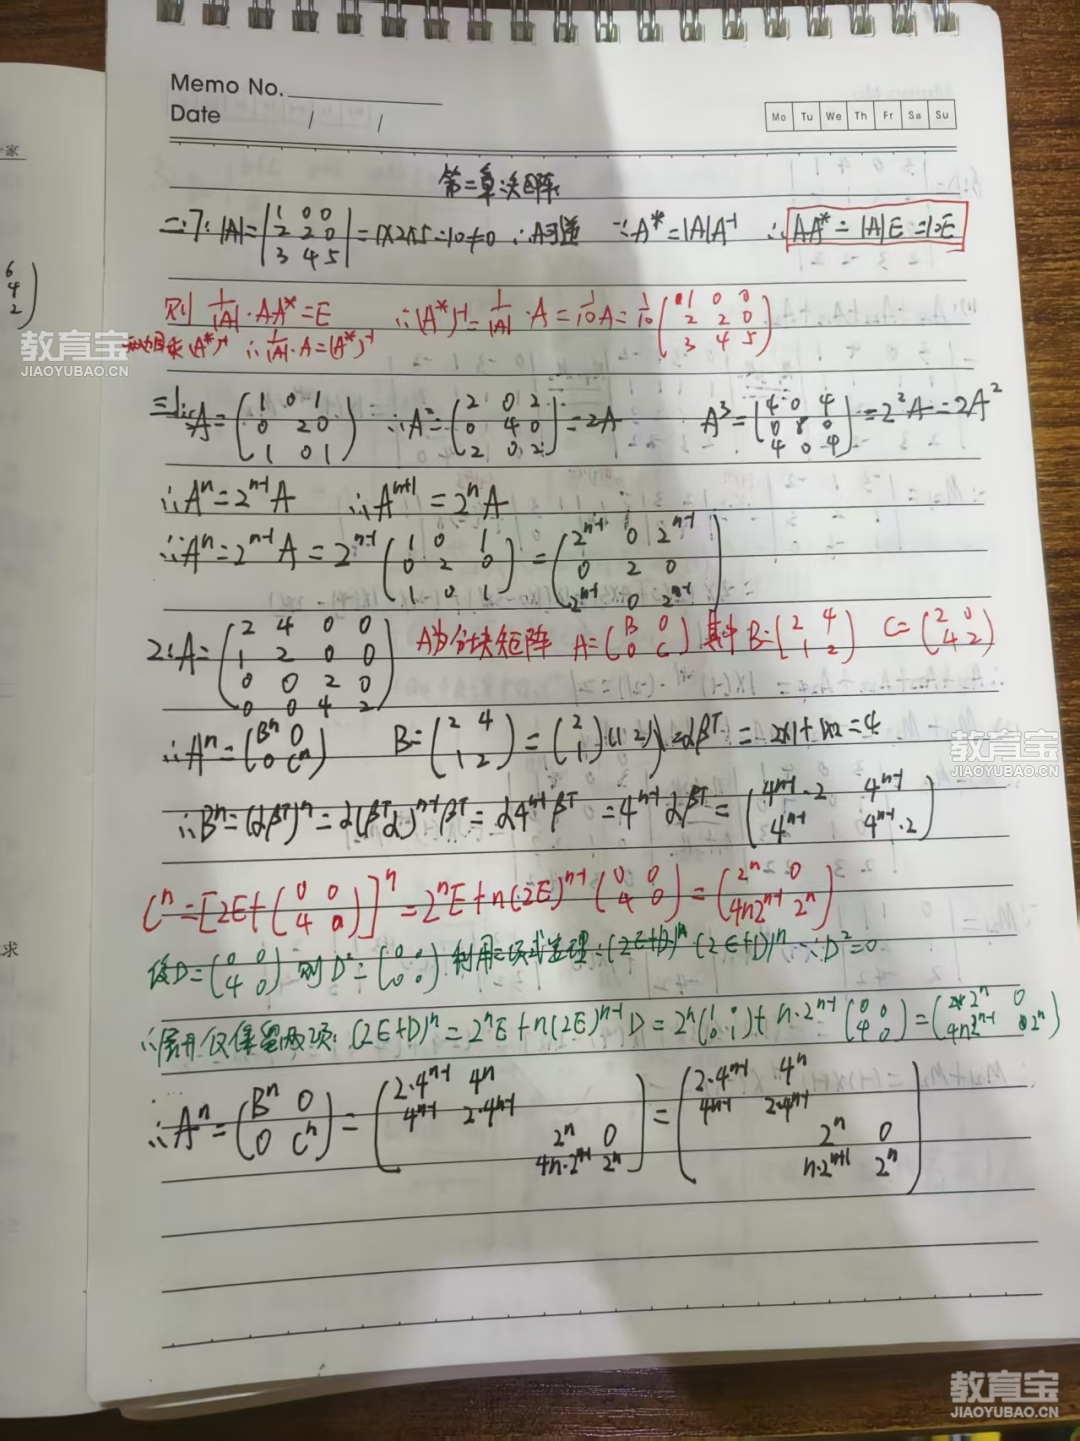 Memo No.
Date / /
Mo Tu We Th Fr Sa Su
家
6
4
2
求
第二章:矩阵
二:7: |A|=|1 0 0; 2 2 0; 3 4 5|=1×2×5=10≠0 ∴A可逆 ∵A*=|A|A⁻¹ ∴AA*=|A|E=10E
则 1/|A|·AA*=E ∴(A*)⁻¹=1/|A|·A=1/10A=1/10(1 0 0; 2 2 0; 3 4 5)
求(A*)⁻¹ ∴1/|A|·A=(A*)⁻¹
三1:A=(1 0 1; 0 2 0; 1 0 1) ∴A²=(2 0 2; 0 4 0; 2 0 2)=2A A³=(4 0 4; 0 8 0; 4 0 4)=2²A=2A²
∴Aⁿ=2ⁿ⁻¹A ∴Aⁿ⁺¹=2ⁿA
∴Aⁿ=2ⁿ⁻¹A=2ⁿ⁻¹(1 0 1; 0 2 0; 1 0 1)=(2ⁿ⁻¹ 0 2ⁿ⁻¹; 0 2 0; 2ⁿ⁻¹ 0 2ⁿ⁻¹)
2:A=(2 4 0 0; 1 2 0 0; 0 0 2 0; 0 0 4 2) A为分块矩阵 A=(B 0; 0 C) 其中B=(2 4; 1 2) C=(2 0; 4 2)
∴Aⁿ=(Bⁿ 0; 0 Cⁿ) B=(2 4; 1 2)=(2; 1)·(1 2)=αβᵀ=2×1+1×2=4
∴Bⁿ=(αβᵀ)ⁿ=α(βᵀα)ⁿ⁻¹βᵀ=α4ⁿ⁻¹βᵀ=4ⁿ⁻¹αβᵀ=(4ⁿ⁻¹·2 4ⁿ⁻¹; 4ⁿ⁻¹ 4ⁿ⁻¹·2)
Cⁿ=[2E+(0 0; 4 0)]ⁿ=2ⁿE+n(2E)ⁿ⁻¹(0 0; 4 0)=(2ⁿ 0; 4n2ⁿ⁻¹ 2ⁿ)
设D=(0 0; 4 0) 则D²=(0 0; 0 0) 利用二项式定理:(2E+D)ⁿ (2E+D)ⁿ ∵D²=0
∴展开仅保留两项:(2E+D)ⁿ=2ⁿE+n(2E)ⁿ⁻¹D=2ⁿ(1 0; 0 1)+n·2ⁿ⁻¹(0 0; 4 0)=(2ⁿ 0; 4n2ⁿ⁻¹ 2ⁿ)
∴Aⁿ=(Bⁿ 0; 0 Cⁿ)=(2·4ⁿ⁻¹ 4ⁿ; 4ⁿ⁻¹ 2·4ⁿ⁻¹; 2ⁿ 0; 4n·2ⁿ⁻¹ 2ⁿ)=(2·4ⁿ⁻¹ 4ⁿ; 4ⁿ⁻¹ 2·4ⁿ⁻¹; 2ⁿ 0; n·2ⁿ⁺¹ 2ⁿ)
教育宝
JIAOYUBAO.CN
教育宝
JIAOYUBAO.CN
教育宝
JIAOYUBAO.CN